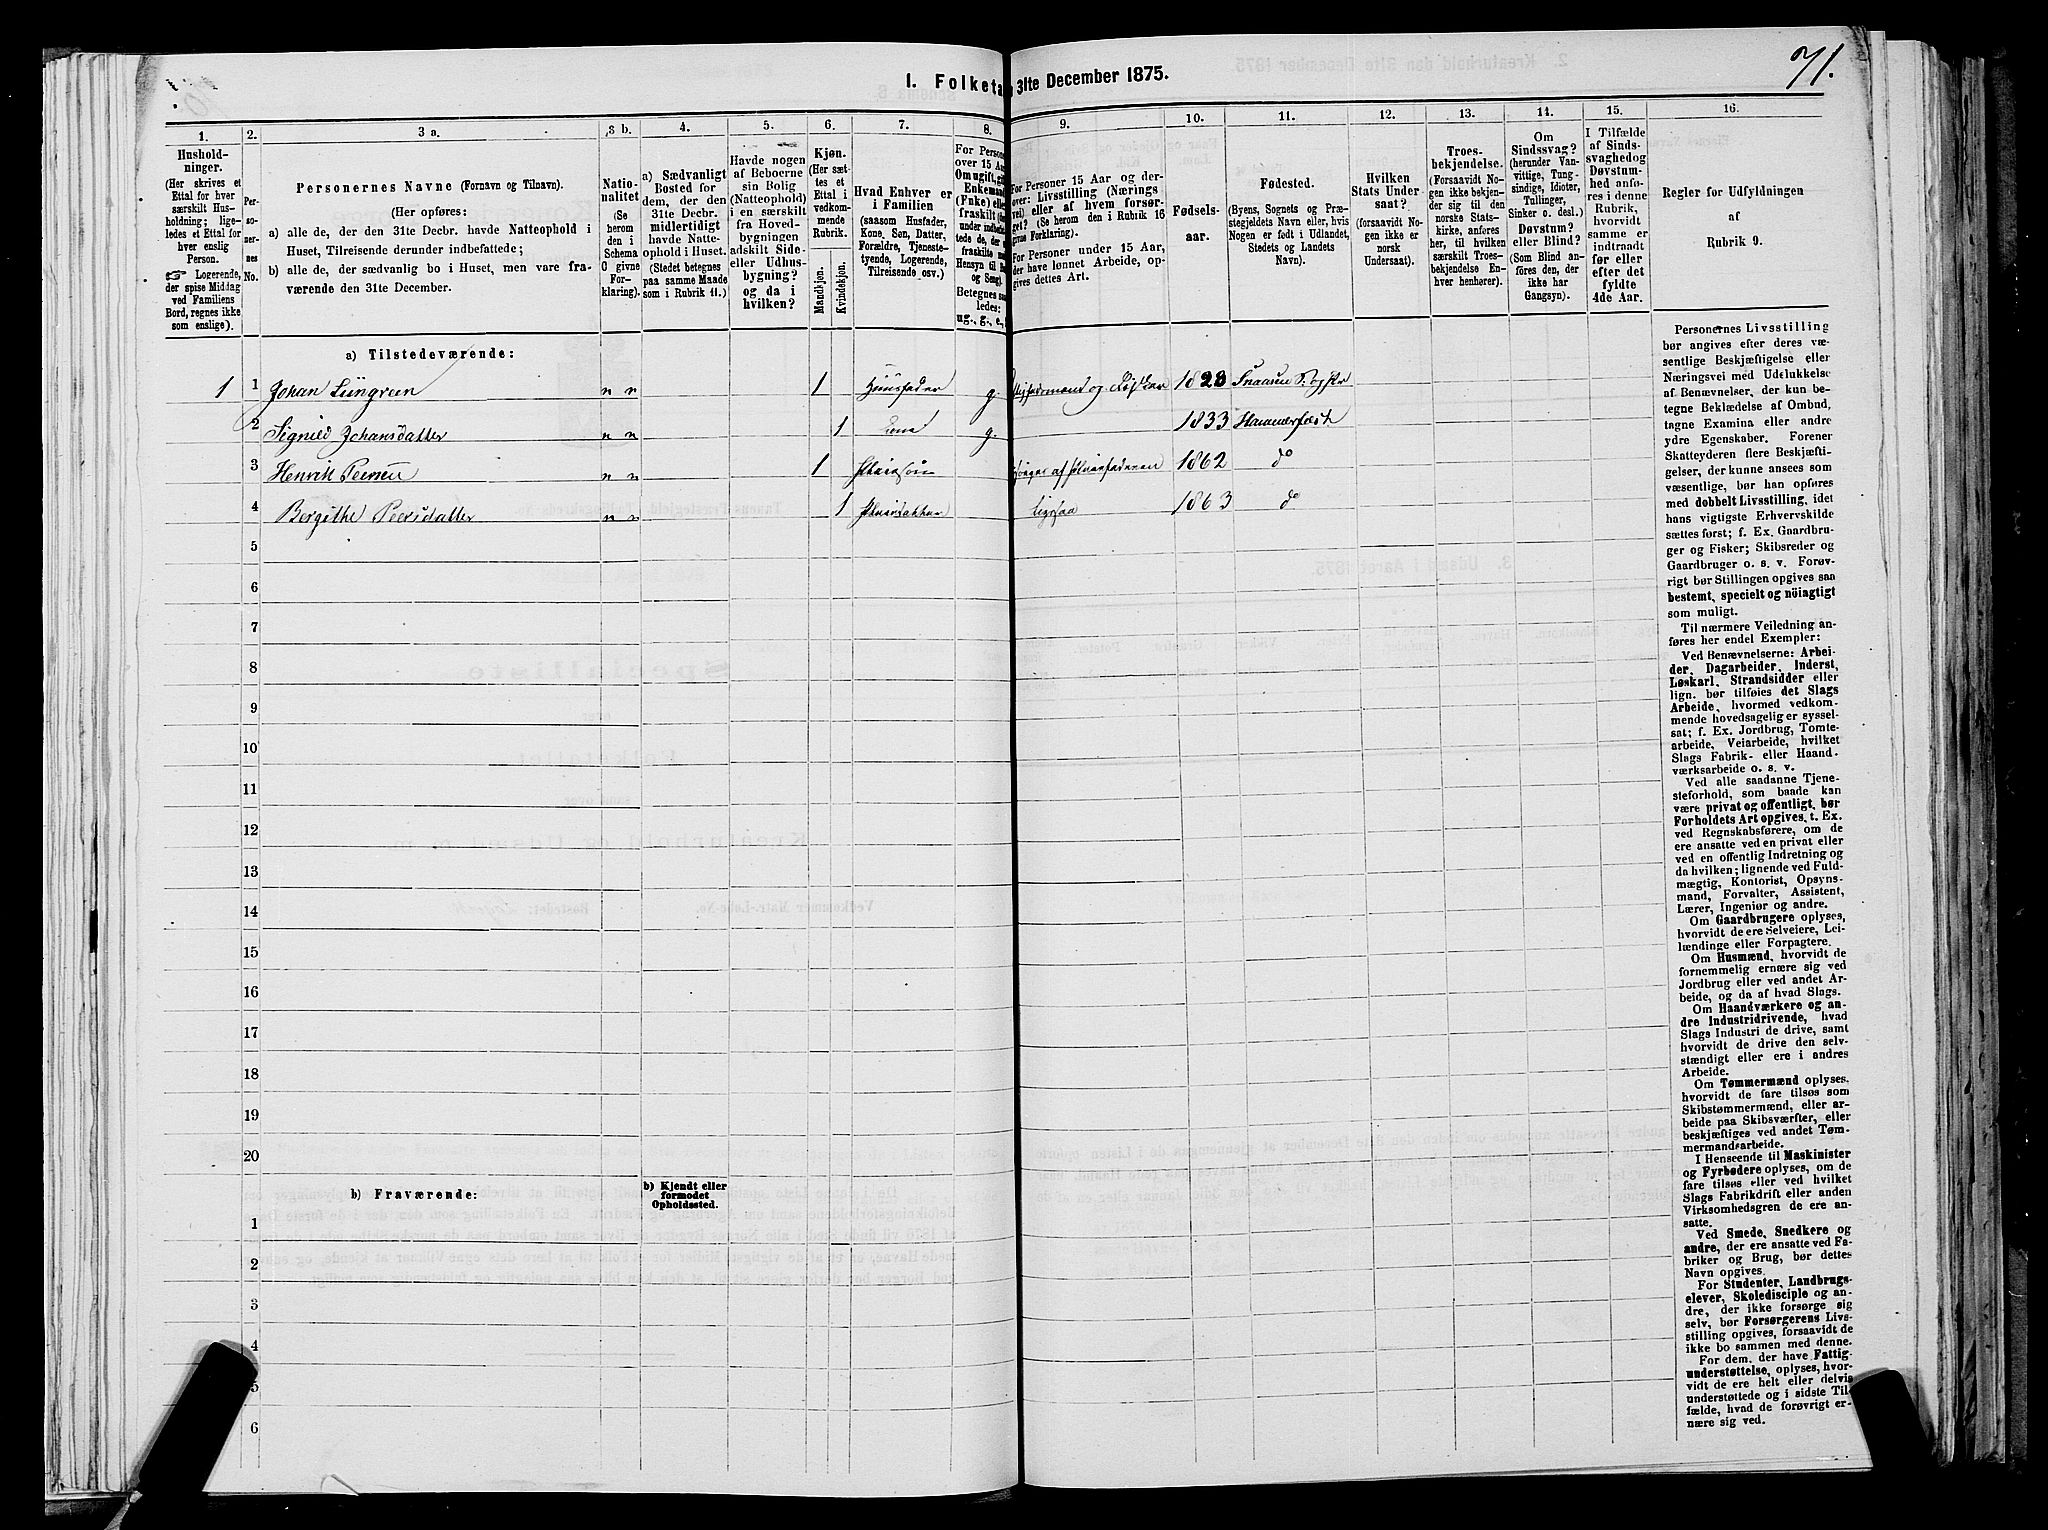 71.
I. Folketa 31lte December 1875.
1.
2.
3 a.
3 b.
4.
5.
6.
7.
8.
9.
10.
11.
12.
13.
14.
15.
16.
Hushold-
ninger.
(Her skrives et
Ettal for hver
særskilt Hus-
holdning; lige-
ledes et Ettal for
hver enslig
Person.
☞ Logerende,
der spise Middag
ved Familiens
Bord, regnes ikke
som enslige).
Per-
so-
ner-
nes
No.
Personernes Navne (Fornavn og Tilnavn).
(Her opføres:
a) alle de, der den 31te Decbr. havde Natteophold i
Huset, Tilreisende derunder indbefattede;
b) alle de, der sædvanlig bo i Huset, men vare fra-
værende den 31te December.
Natio-
nalitet
(Se
herom
den i
Schema
O givne
For-
klaring).
a) Sædvanligt
Bosted for
dem, der den
31te Decbr.
midlertidigt
havde Natte-
ophold i Huset.
(Stedet betegnes
paa samme Maade
som i Rubrik 11.)
Havde nogen
af Beboerne
sin Bolig
(Natteophold)
i en særskilt
fra Hoved-
bygningen
adskilt Side-
eller Udhus-
bygning?
og da i
hvilken?
Kjøn.
(Her sæt-
tes et
Ettal i
vedkom-
mende
Rubrik.
Mandkjøn.
Kvindekjøn.
Hvad Enhver er
i Familien
(saasom Husfader,
Kone, Søn, Datter,
Forældre, Tjeneste-
tyende, Logerende,
Tilreisende osv.)
For Person
over 15 Aar
Om ugift, gi
Enkemand
(Fnke) eller
fraskilt (
under indbe
tede de, der
fraskilte m
Hensyn til B
og Seng)
Betegnes saa
ledes:
ug., g., e.,
For Personer 15 Aar og der-
over: Livsstilling (Nærings
vei) eller af hvem forsør-
get? (Se herom den i Rubrik 16
givne Forklaring).
For Personer under 15 Aar,
der have lønnet Arbeide, op-
gives dettes Art.
Fødsels-
aar.
Fødested.
(Byens, Sognets og Præ-
stegjeldets Navn eller, hvis
Nogen er født i Udlandet,
Stedets og Landets
Navn).
Hvilken
Stats Under-
saat?
(forsaavidt No-
gen ikke er
norsk
Undersaat).
Troes-
bekjendelse.
(Forsaavidt No-
gen ikke bekjen-
der sig til den
norske Stats-
kirke, anføres
her, til hvilken
særskilt Troes-
bekjendelse En-
hver henhører).
Om
Sindssvag?
(herunder Van-
vittige, Tung-
sindige, Idioter,
Tullinger,
Sinker o. desl.)
Døvstum?
eller Blind?
(Som Blind an-
føres den, der
ikke har
Gangsyn).
I Tilfælde
af Sinds-
svaghedog
Døvstum-
hed anfø-
res i denne
Rubrik,
hvorvidt
samme er
indtraadt
før eller
efter det
fyldte
4de Aar.
Regler for Udfyldningen
af
Rubrik 9.
a) Tilstedeværende:
1 1 Johan Lüngreen n n 1 Huusfader g. 1828
2 Signild Johansdatter n n 1 Kone g. 1833 Hammerfest
3 Henrik n n 1 1862 do
4 Bergithe Peersdatter n n 1 1863 do
5
6
7
8
9
10
11
12
13
14
15
16
17
18
19
20
b) Fraværende:
b) Kjendt eller
formodet
Opholdssted.
1
2
3
4
5
6
Personernes Livsstilling
bør angives efter deres væ-
sentlige Beskjæftigelse eller
Næringsvei med Udelukkelse
af Benævnelser, der kun be-
tegne Beklædelse af Ombud,
tagne Examina eller andre
ydre Egenskaber. Forener
Skatteyderen flere Beskjæfti-
gelser, der kunne ansees som
væsentlige, bør han opføres
med dobbelt Livsstilling, idet
hans vigtigste Erhvervskilde
sættes først; f. Ex. Gaardbru-
ger og Fisker; Skibsreder og
Gaardbruger o. s. v. Forøv-
rigt bør Stillingen opgives saa
bestemt, specielt og nöiagtigt
som muligt.
Til nærmere Veiledning an-
føres her endel Exempler:
Ved Benævnelserne: Arbei-
der, Dagarbeider, Inderst,
Løskarl, Strandsidder eller
lign. bør tilføies det Slags
Arbeide, hvormed vedkom-
mende hovedsagelig er syssel-
sat; f. Ex. Jordbrug, Tomte-
arbeide, Veiarbeide, hvilket
Slags Fabrik- eller Haand-
værksarbeide o. s. v.
Ved alle saadanne Tjene-
steforhold, som baade kan
være privat og offentligt, bør
Forholdets Art opgives, t. Ex.
ved Regnskabsførere, om de
ere ansatte ved en privat eller
ved en offentlig Indretning og
da hvilken; lignende ved Fuld-
mægtig, Kontorist, Opsyns-
mand, Forvalter, Assistent,
Lærer, Ingeniør og andre.
Om Gaardbrugere oplyses,
hvorvidt de ere Selveiere, Lei-
lændinge eller Forpagtere.
Om Husmænd, hvorvidt de
fornemmelig ernære sig ved
Jordbrug eller ved andet Ar-
beide, og da af hvad Slags.
Om Haandværkere og an-
dre Industridrivende, hvad
Slags Industri de drive, samt
hvorvidt de drive den selv-
stændigt eller ere i andres
Arbeide.
Om Tømmermænd oplyses,
hvorvidt de fare tilsøs som
Skibstømmermænd, eller ar-
beide paa Skibsværfter, eller
beskjæftiges ved andet Tøm-
mermandsarbeide.
I Henseende til Maskinister
og Fyrbødere oplyses, om de
fare tilsøs eller ved hvilket
Slags Fabrikdrift eller anden
Virksomhedsgren de ere an-
satte.
Ved Smede, Snedkere og
andre, der ere ansatte ved Fa-
briker og Brug, bør dettes
Navn opgives.
For Studenter, Landbrugs-
elever, Skoledisciple og an-
dre, der ikke forsørge sig
selv, bør Forsørgerens Livs-
stilling opgives, forsaavidt de
ikke bo sammen med denne.
For dem, der have Fattig-
understøttelse, oplyses, hvor-
vidt de ere helt eller delvis
understøttede og i sidste Til-
fælde, hvad de forøvrigt er-
nære sig ved.